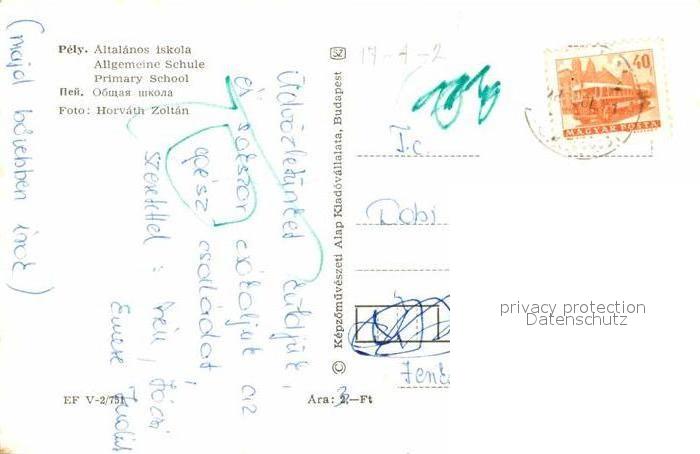 Pély. Általános iskola
Allgemeine Schule
Primary School
Пей. Общая школа
Foto: Horváth Zoltán
(majd bővebben írok)
Üdvözletünket küldjük,
és sokszor csókoljuk az
egész családot!
szeretettel:
Emese
EF V-2/751
Ára: 2,—Ft
© Képzőművészeti Alap Kiadóvállalata, Budapest
17-4-2
40
MAGYAR POSTA
I.c.
Dobi
privacy protection
Datenschutz